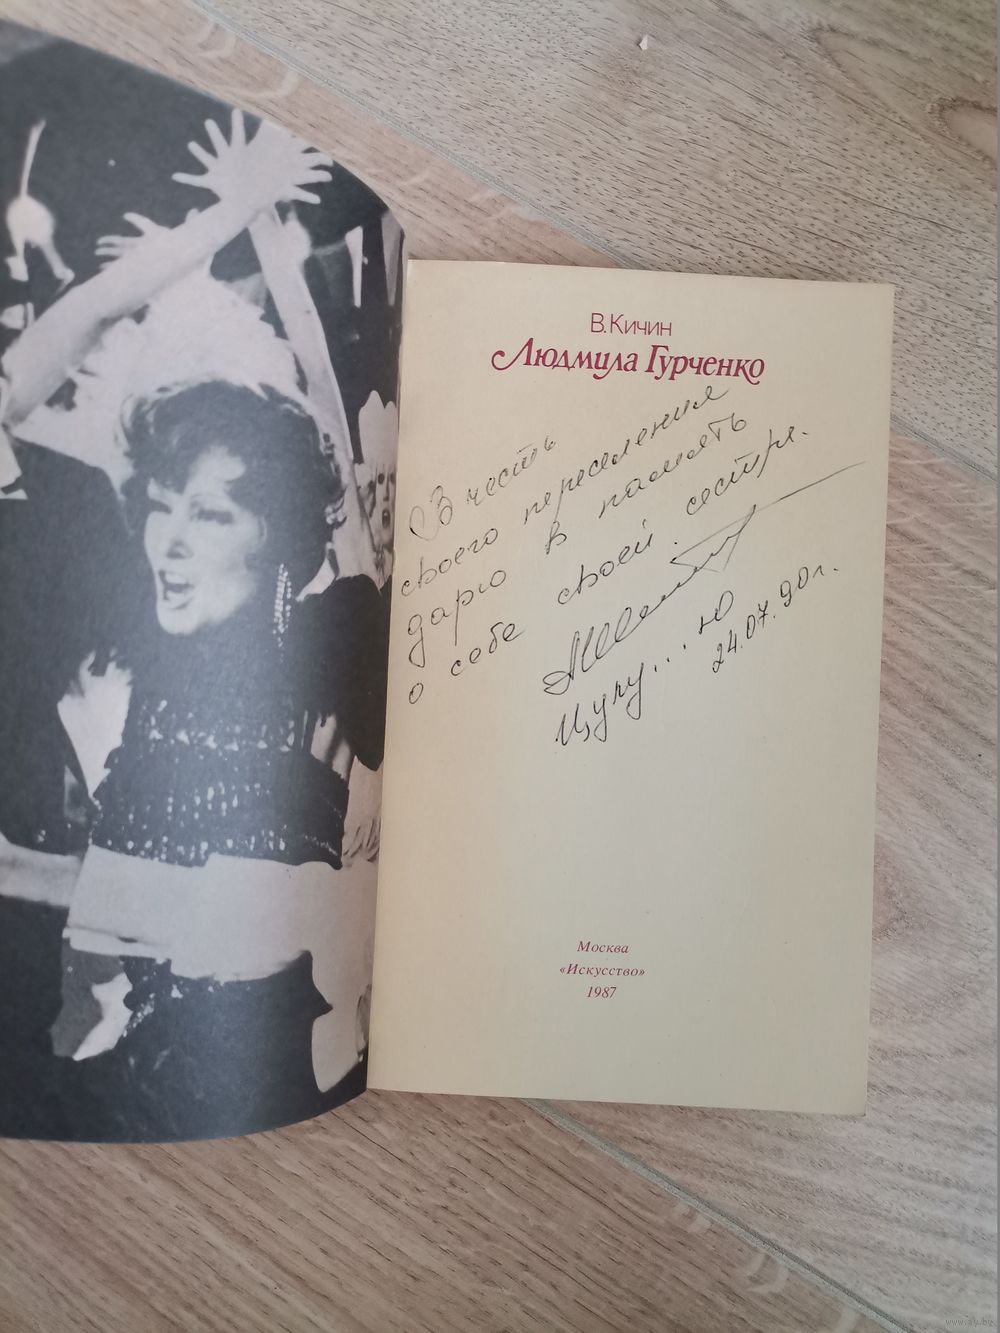 В. Кичин
Людмила Гурченко
В честь
своего переселения
дарю в память
о себе своей сестре.
Цулу...ю
24.07.90г.
Москва
«Искусство»
1987
www.ay.by